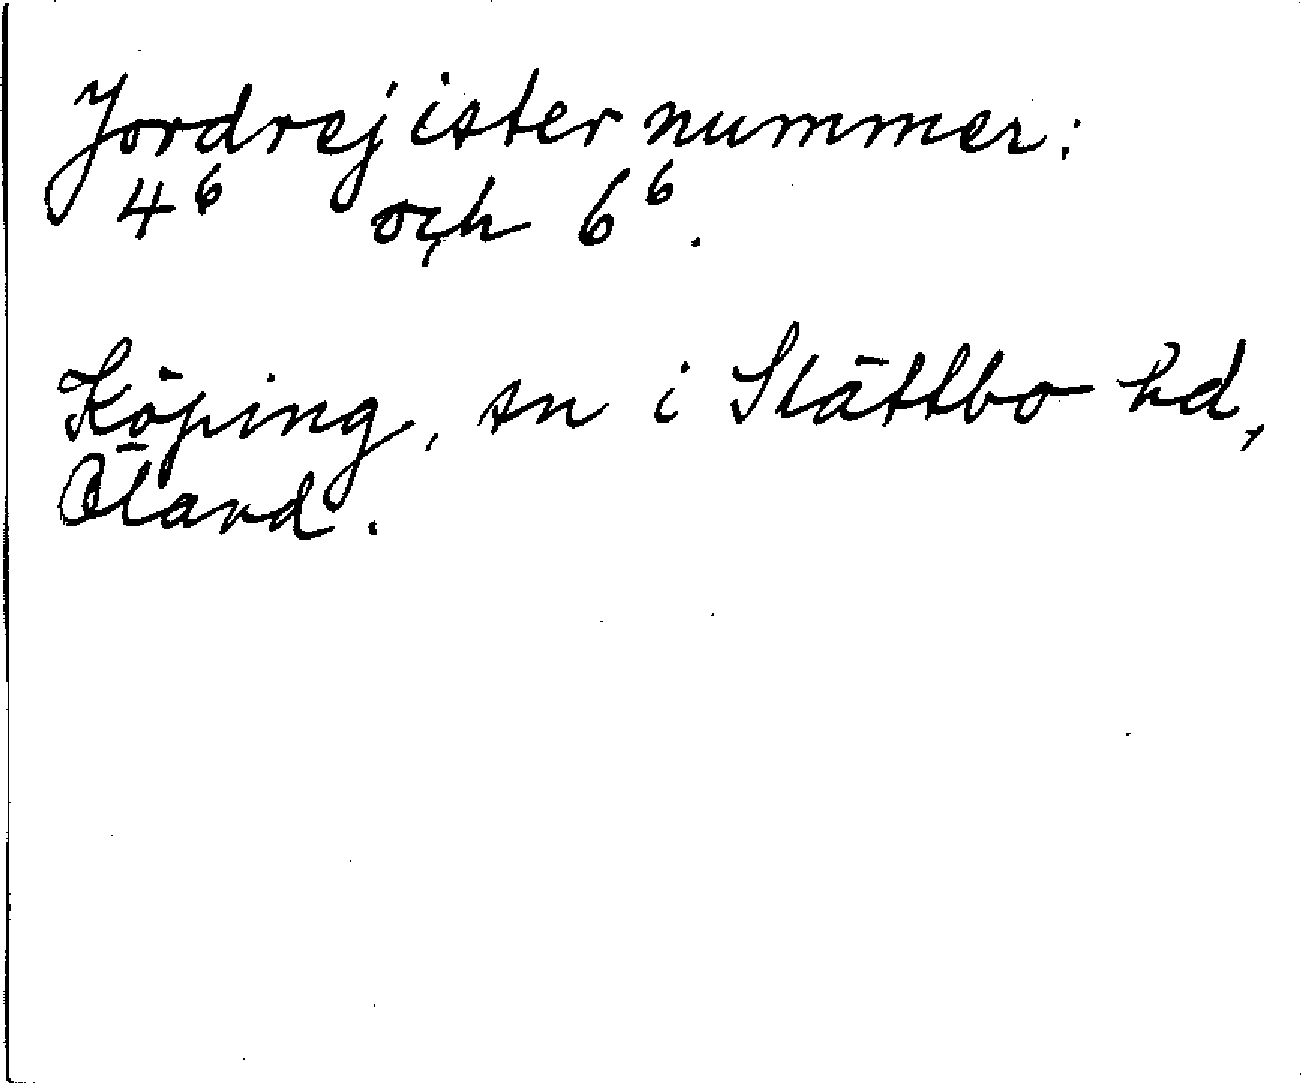 Jordrejisternummer:
4⁶ och 6⁶.
Köping, sn i Slättbo hd,
Öland.